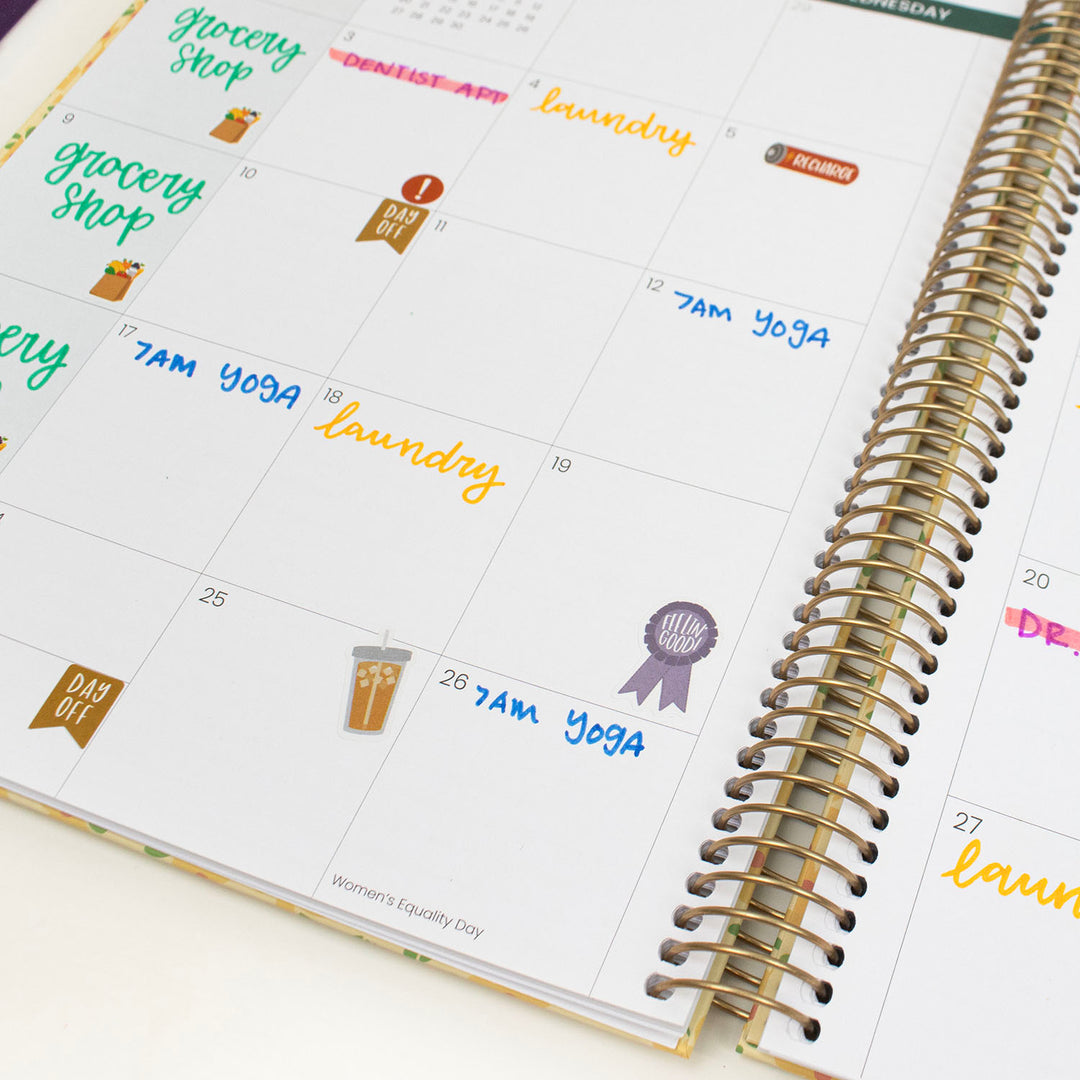 DNESDAY
grocery
shop
3
DENTIST APP
4
laundry
5
RECHARGE
9
grocery
shop
10
!
DAY
OFF
11
12
7AM YOGA
ery
17
7AM YOGA
18
laundry
19
FEELIN'
GOOD!
20
DR.
DAY
OFF
25
26
7AM YOGA
Women's Equality Day
27
laun